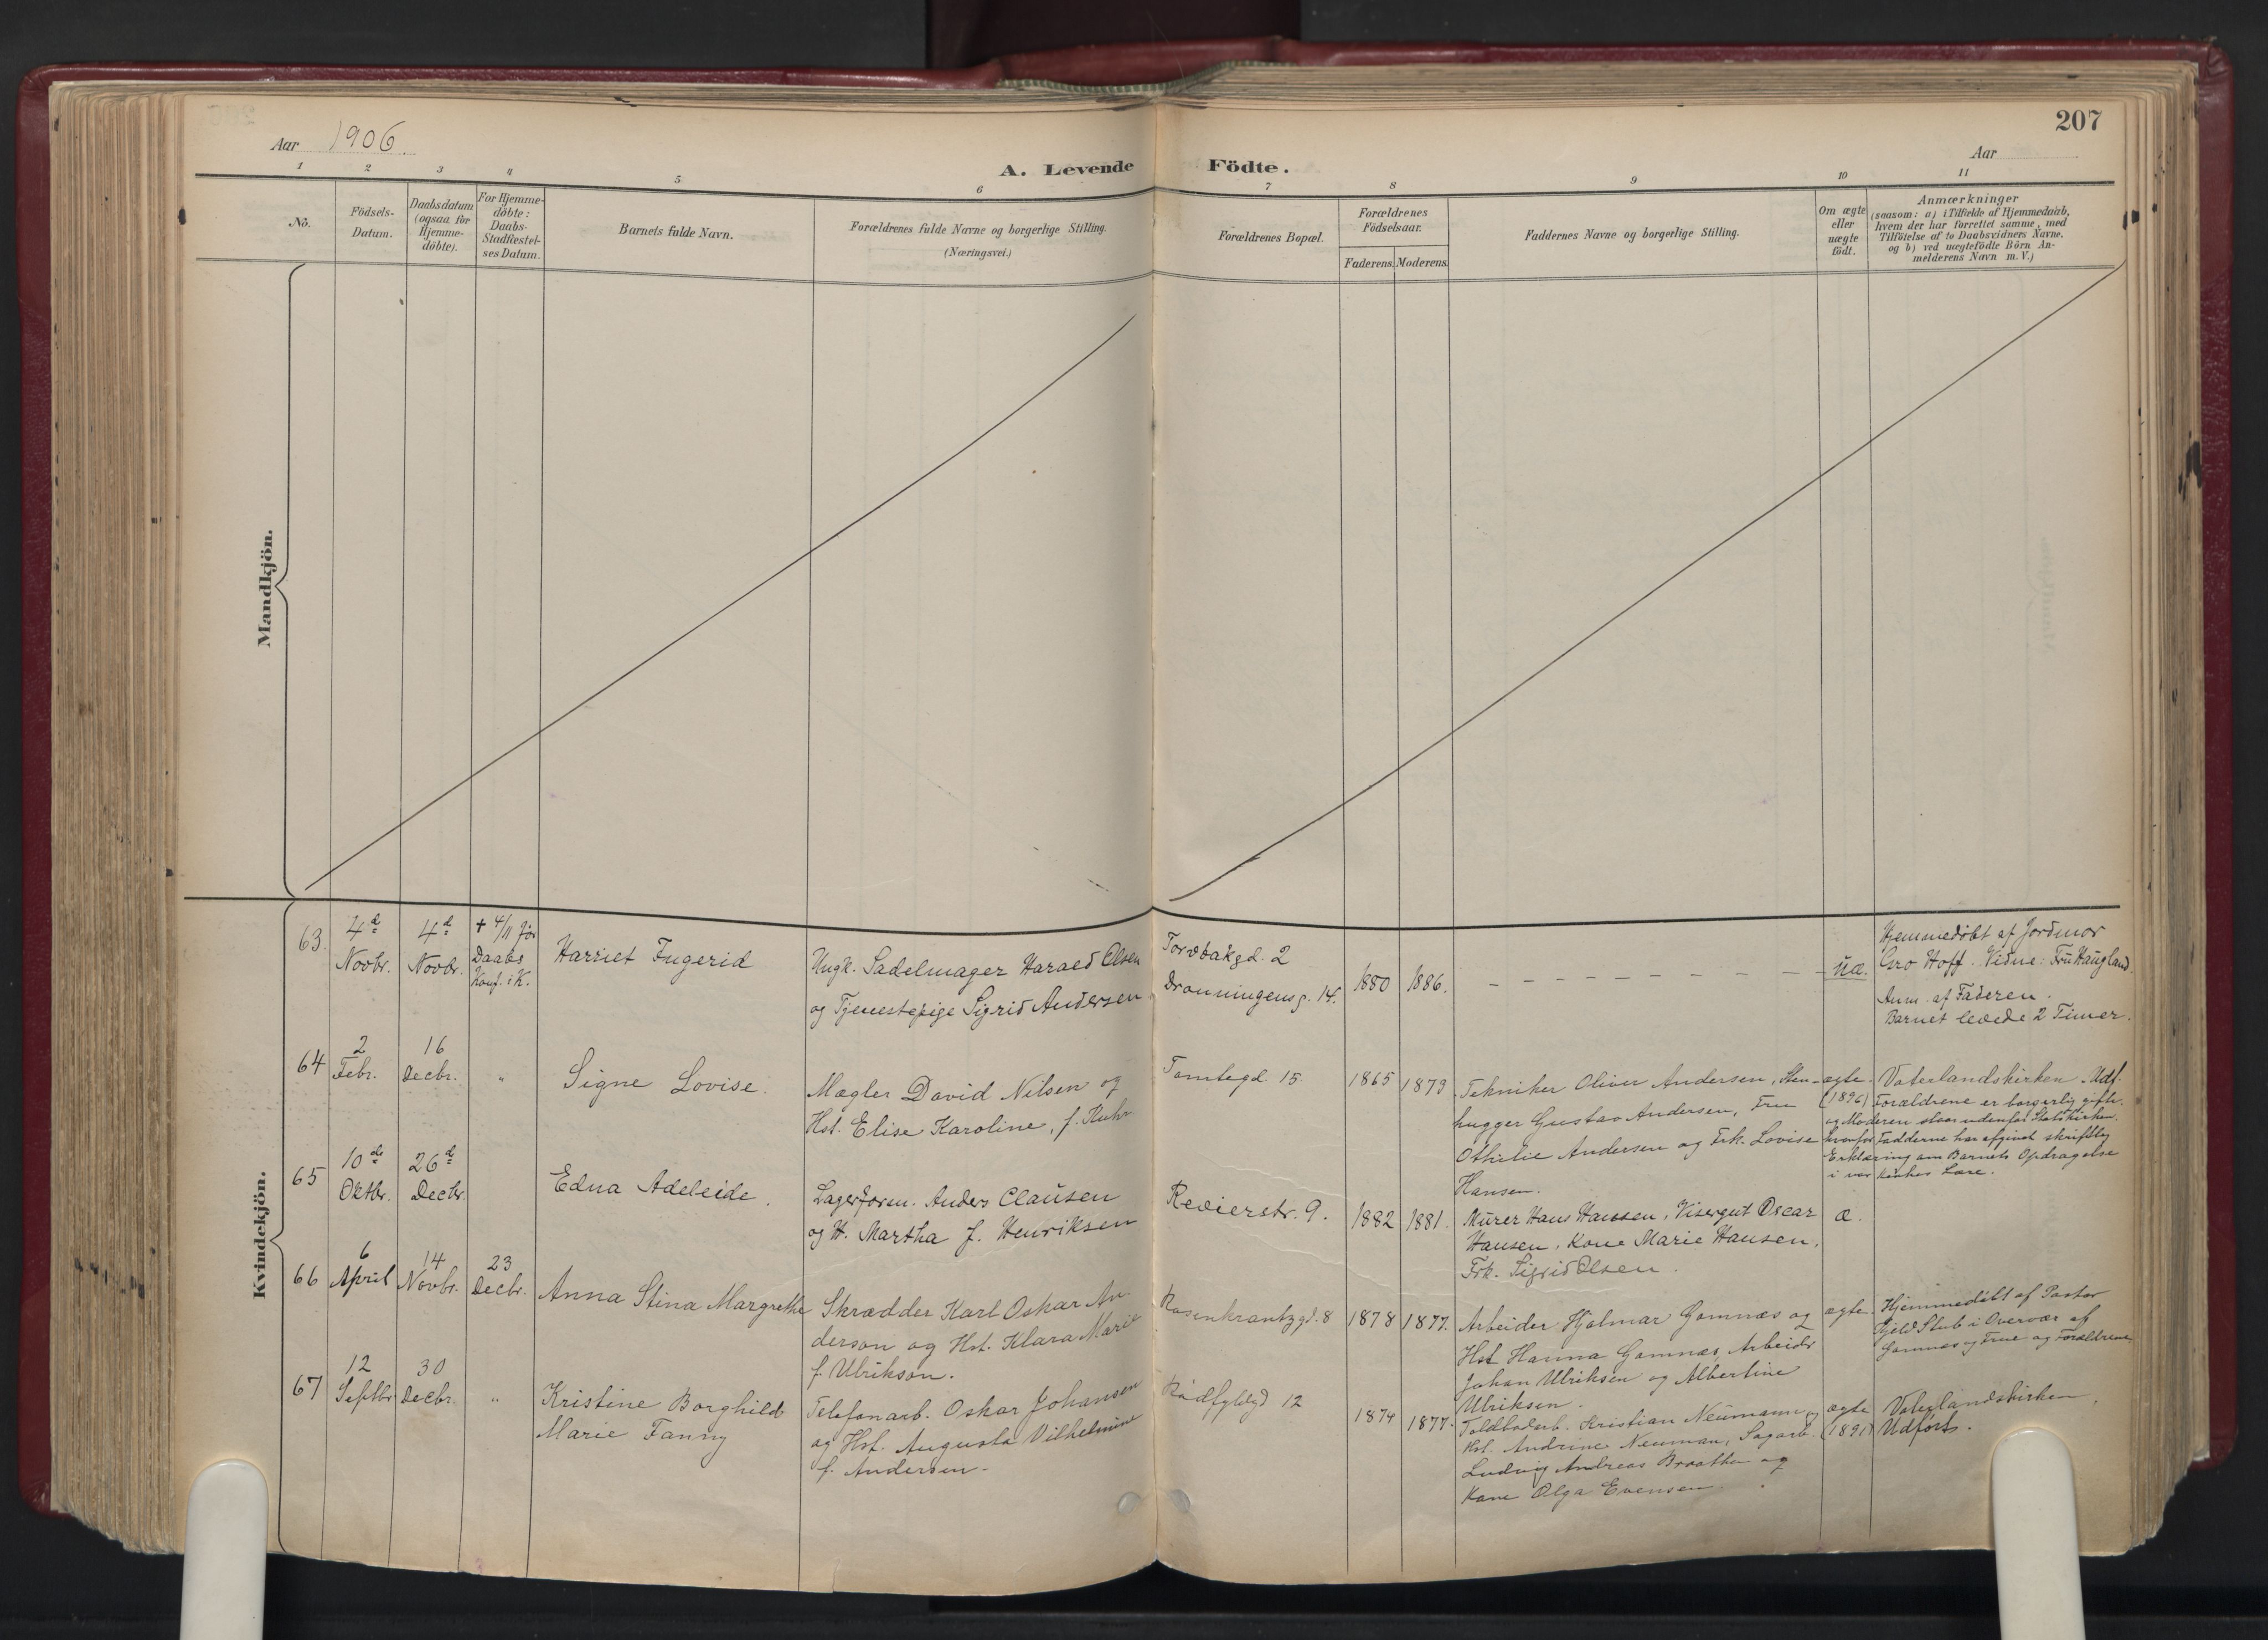 207
Aar 1906.
Aar
A. Levende Födte.
1 2 3 4 5 6 7 8 9 10 11
No.
Födsels-
Datum.
Daabsdatum
(ogsaa for
Hjemme-
döbte).
For Hjemme-
döbte:
Daabs-
Stadfæstel-
ses Datum.
Barnets fulde Navn.
Forældrenes fulde Navne og borgerlige Stilling.
(Næringsvei.)
Forældrenes Bopæl.
Forældrenes
Födselsaar.
Faderens. Moderens.
Faddernes Navne og borgerlige Stilling.
Om ægte
eller
uægte
födt.
Anmærkninger
(saasom: a) i Tilfælde af Hjemmedaab,
hvem der har forrettet samme, med
Tilföielse af to Daabsvidners Navne,
og b) ved uægtefödte Börn An-
melderens Navn m. V.)
Mandkjön.
Kvindekjön.
63
4de
Novbr.
4de
Novbr.
+ 4/11 för
Daabs
Konf. i K.
Harriet Ingerid
Ungk. Sadelmager Harald Olsen
og Tjenestepige Sigrid Andersen
Torvbakgd. 2
Dronningensg. 14.
1880
1886.
uæ.
Hjemmedöbt af Jordmor
Gro Hoff. Vidne: Fru Haugland.
Anm. af Faderen.
Barnet levede 2 Timer.
64
2
Febr.
16
Decbr.
"
Signe Lovise.
Mægler David Nilsen og
Hst. Elise Karoline, f. Kuhr
Tomtegd. 15.
1865
1873
Tekniker Oliver Andersen, Sten-
hugger Gustav Andersen, Fru
Othilie Andersen og Frk. Lovise
Hansen.
ægte.
(1896)
Vaterlandskirken. Udf.
Forældrene er borgerlig gifte.
og Moderen staar udenfor Statskirken,
hvorfor Fadderne har afgivet skriftlig
Erklæring om Barnets Opdragelse
i vor Kirkes Lære.
65
10de
Oktbr.
26de
Decbr.
Edna Adeleide.
Lagerforv. Anders Clausen
og H. Martha f. Henriksen
Revierstr. 9.
1882
1881.
Murer Hans Hansen, Visergut Oscar
Hansen, Kone Marie Hansen,
Frk. Sigrid Olsen.
æ.
66
6
April
14
Novbr.
23
Decbr.
Anna Stina Margrethe
Skrædder Karl Oskar An-
derson og Hst. Klara Marie
f. Ulrikson.
Rosenkrantzgd. 8
1878
1877.
Arbeider Hjalmar Gomnæs og
Hst Hanna Gomnæs, Arbeider
Johan Ulriksen og Albertine
Ulriksen.
ægte.
Hjemmedöbt af Pastor
Kjeld Stub i Overvær af
Gomnæs og Frue og Forældrene
67
12
Septbr
30
Decbr.
"
Kristine Borghild
Marie Fanny
Telefonarb. Oskar Johansen
og Hst. Augusta Vilhelmine
f. Andersen.
Rådfyldgd 12
1874
1877.
Toldbodarb. Kristian Neumann og
Hst. Andrine Neuman, Sagarb.
Ludvig Andreas Braathen og
Kone Olga Evensen.
ægte
(1891)
Vaterlandskirken,
Udförts.